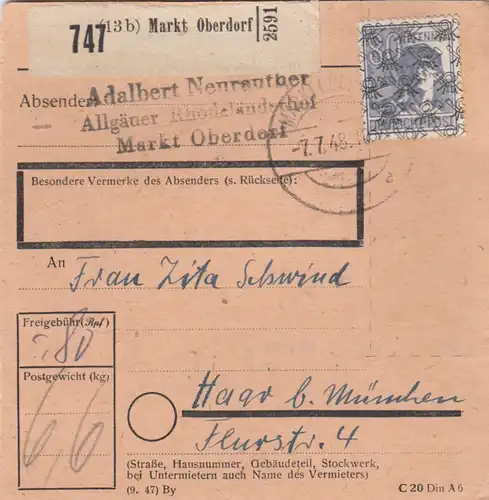 747
(13b) Markt Oberdorf
2591
Absender
Adalbert Neureuther
Allgäuer Rhönländerhof
Markt Oberdorf
-7.7.48
a
80
DEUTSCHE POST
Besondere Vermerke des Absenders (s. Rückseite):
An
Frau Zita Schwind
Freigebühr (Rpf)
-.80
Postgewicht (kg)
6,6
Haar b. München
Flurstr. 4
(Straße, Hausnummer, Gebäudeteil, Stockwerk,
bei Untermietern auch Name des Vermieters)
(9. 47) By
C 20 Din A 6